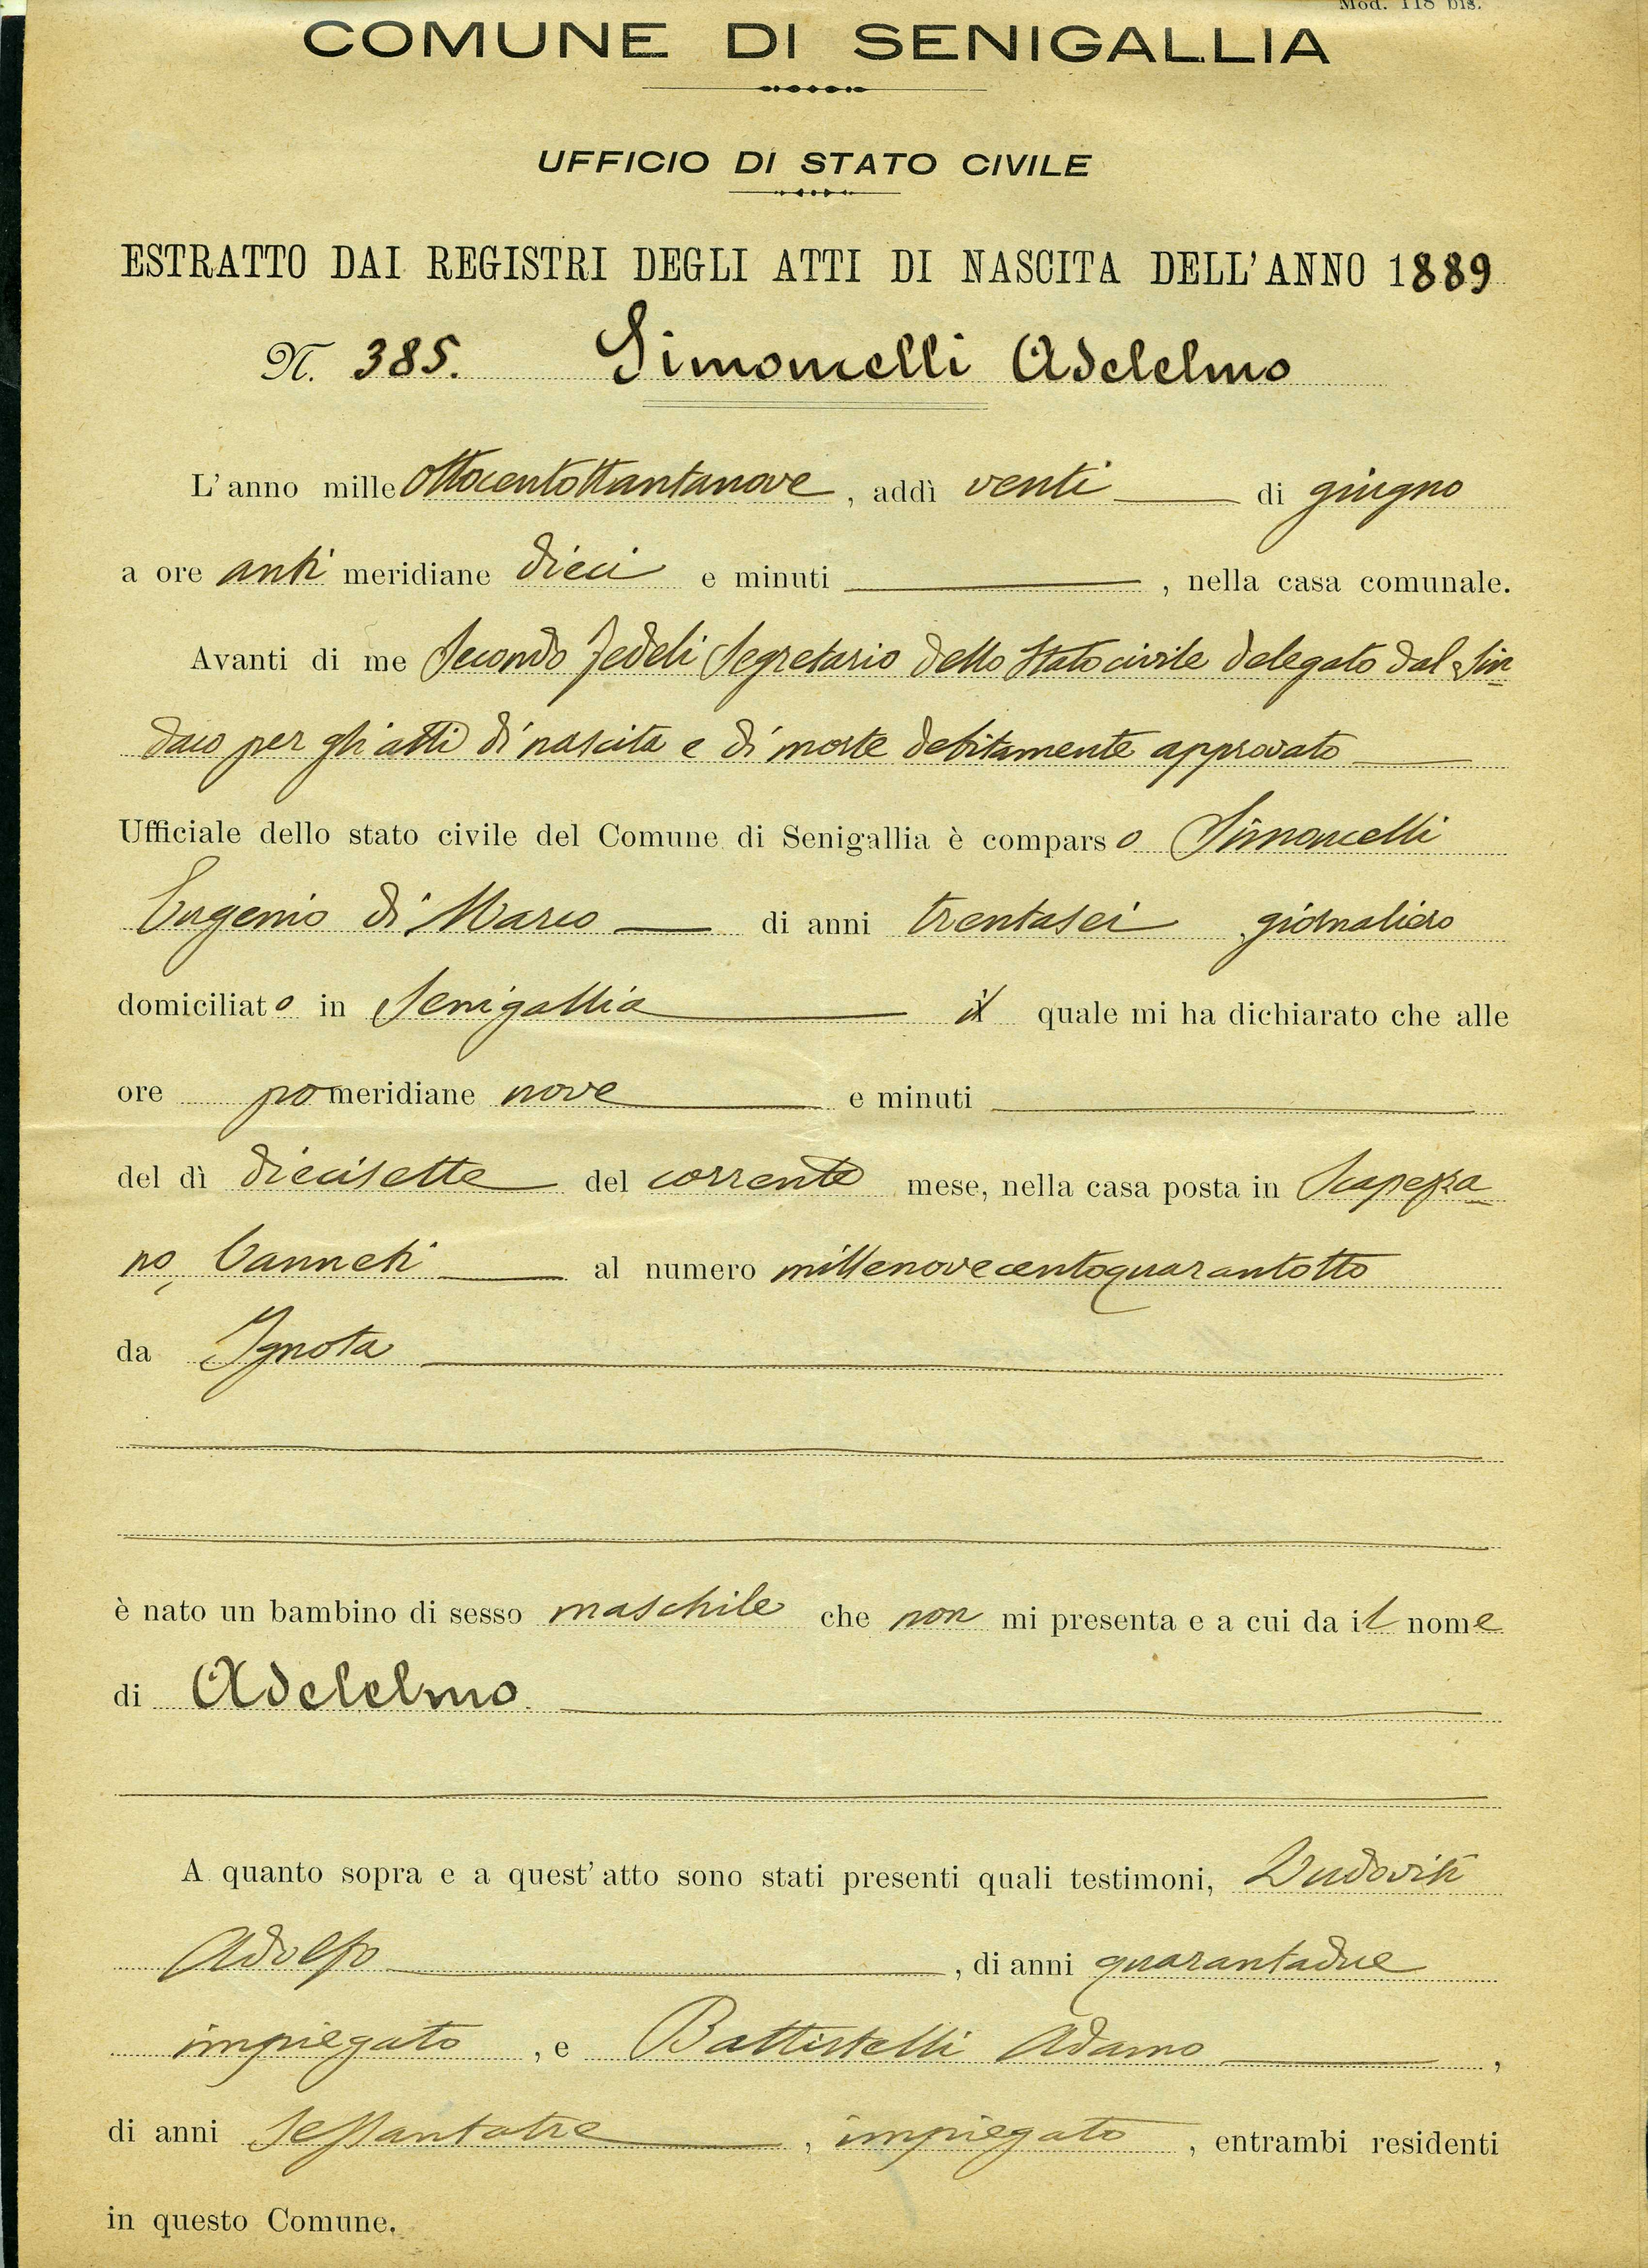 Mod. 118 bis.
COMUNE DI SENIGALLIA
UFFICIO DI STATO CIVILE
ESTRATTO DAI REGISTRI DEGLI ATTI DI NASCITA DELL'ANNO 1889
N. 385. Simoncelli Adelelmo
L'anno mille ottocentottantanove, addì venti di giugno
a ore anti meridiane dieci e minuti , nella casa comunale.
Avanti di me Secondo Fedeli Segretario dello Stato civile delegato dal Sin
daco per gli atti di nascita e di morte debitamente approvato
Ufficiale dello stato civile del Comune di Senigallia è comparso Simoncelli
Eugenio di Marco di anni trentasei giornaliero
domiciliato in Senigallia il quale mi ha dichiarato che alle
ore pomeridiane nove e minuti
del dì diecisette del corrente mese, nella casa posta in Scapezza
no, Canneti al numero millenovecentoquarantotto
da Ignota
è nato un bambino di sesso maschile che non mi presenta e a cui da il nome
di Adelelmo.
A quanto sopra e a quest'atto sono stati presenti quali testimoni, Dudoviti
Adolfo , di anni quarantadue
impiegato , e Battistelli Adamo ,
di anni sessantatre , impiegato , entrambi residenti
in questo Comune.